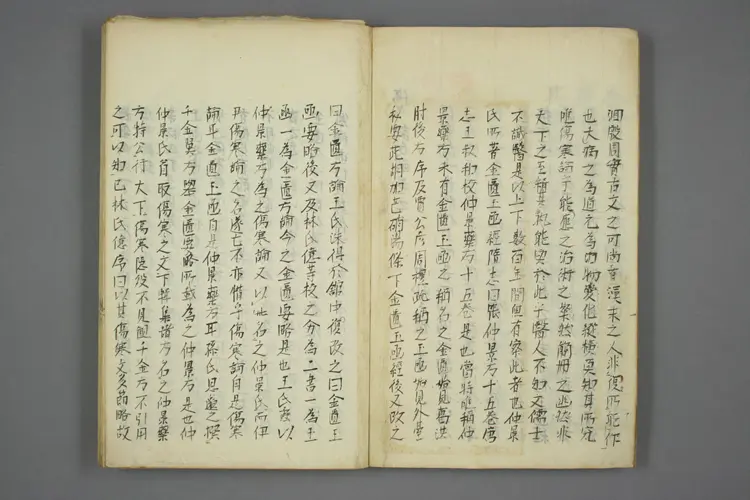 固殷周實古文之可尚者漢末之人非復所能作
也夫病之為道尤為而物變化縱横莫知其所究
唯傷寒論乎能應之治術之粲然簡冊之 非
天下之至賢其孰能與於此乎醫人不知文儒士
不識醫是以上下数百年間無有察此者也仲景
氏所著金匱玉函經隋志曰張仲景方十五卷唐
志王叔和校仲景藥方十五卷是也當時唯稱仲
景藥方未有金匱玉函之稱名之金匱始見葛洪
肘後方序及 公彦周禮疏稱之玉函始見外臺
秘要此 條下金匱玉函經後又改之
曰金匱方論王氏洙得於館中復改之曰金匱玉
函要略後又及林氏億等校之分為二書一為玉
函一為金匱方論今之金匱要略是也王氏 以
仲景藥方為之傷寒論又以 名之仲景氏所
傷寒論之名遂亡不亦惜乎傷寒論自是傷寒
論耳金匱玉函自是仲景藥方耳孫氏思邈之撰
千金 方與金匱要略所 為之仲景方是也仲
景氏首取傷寒之文下採集諸方名之仲景藥
方特公行大下傷寒隐没不見 千金方不引用
之可以知已林氏億序曰以其傷寒文多節略故